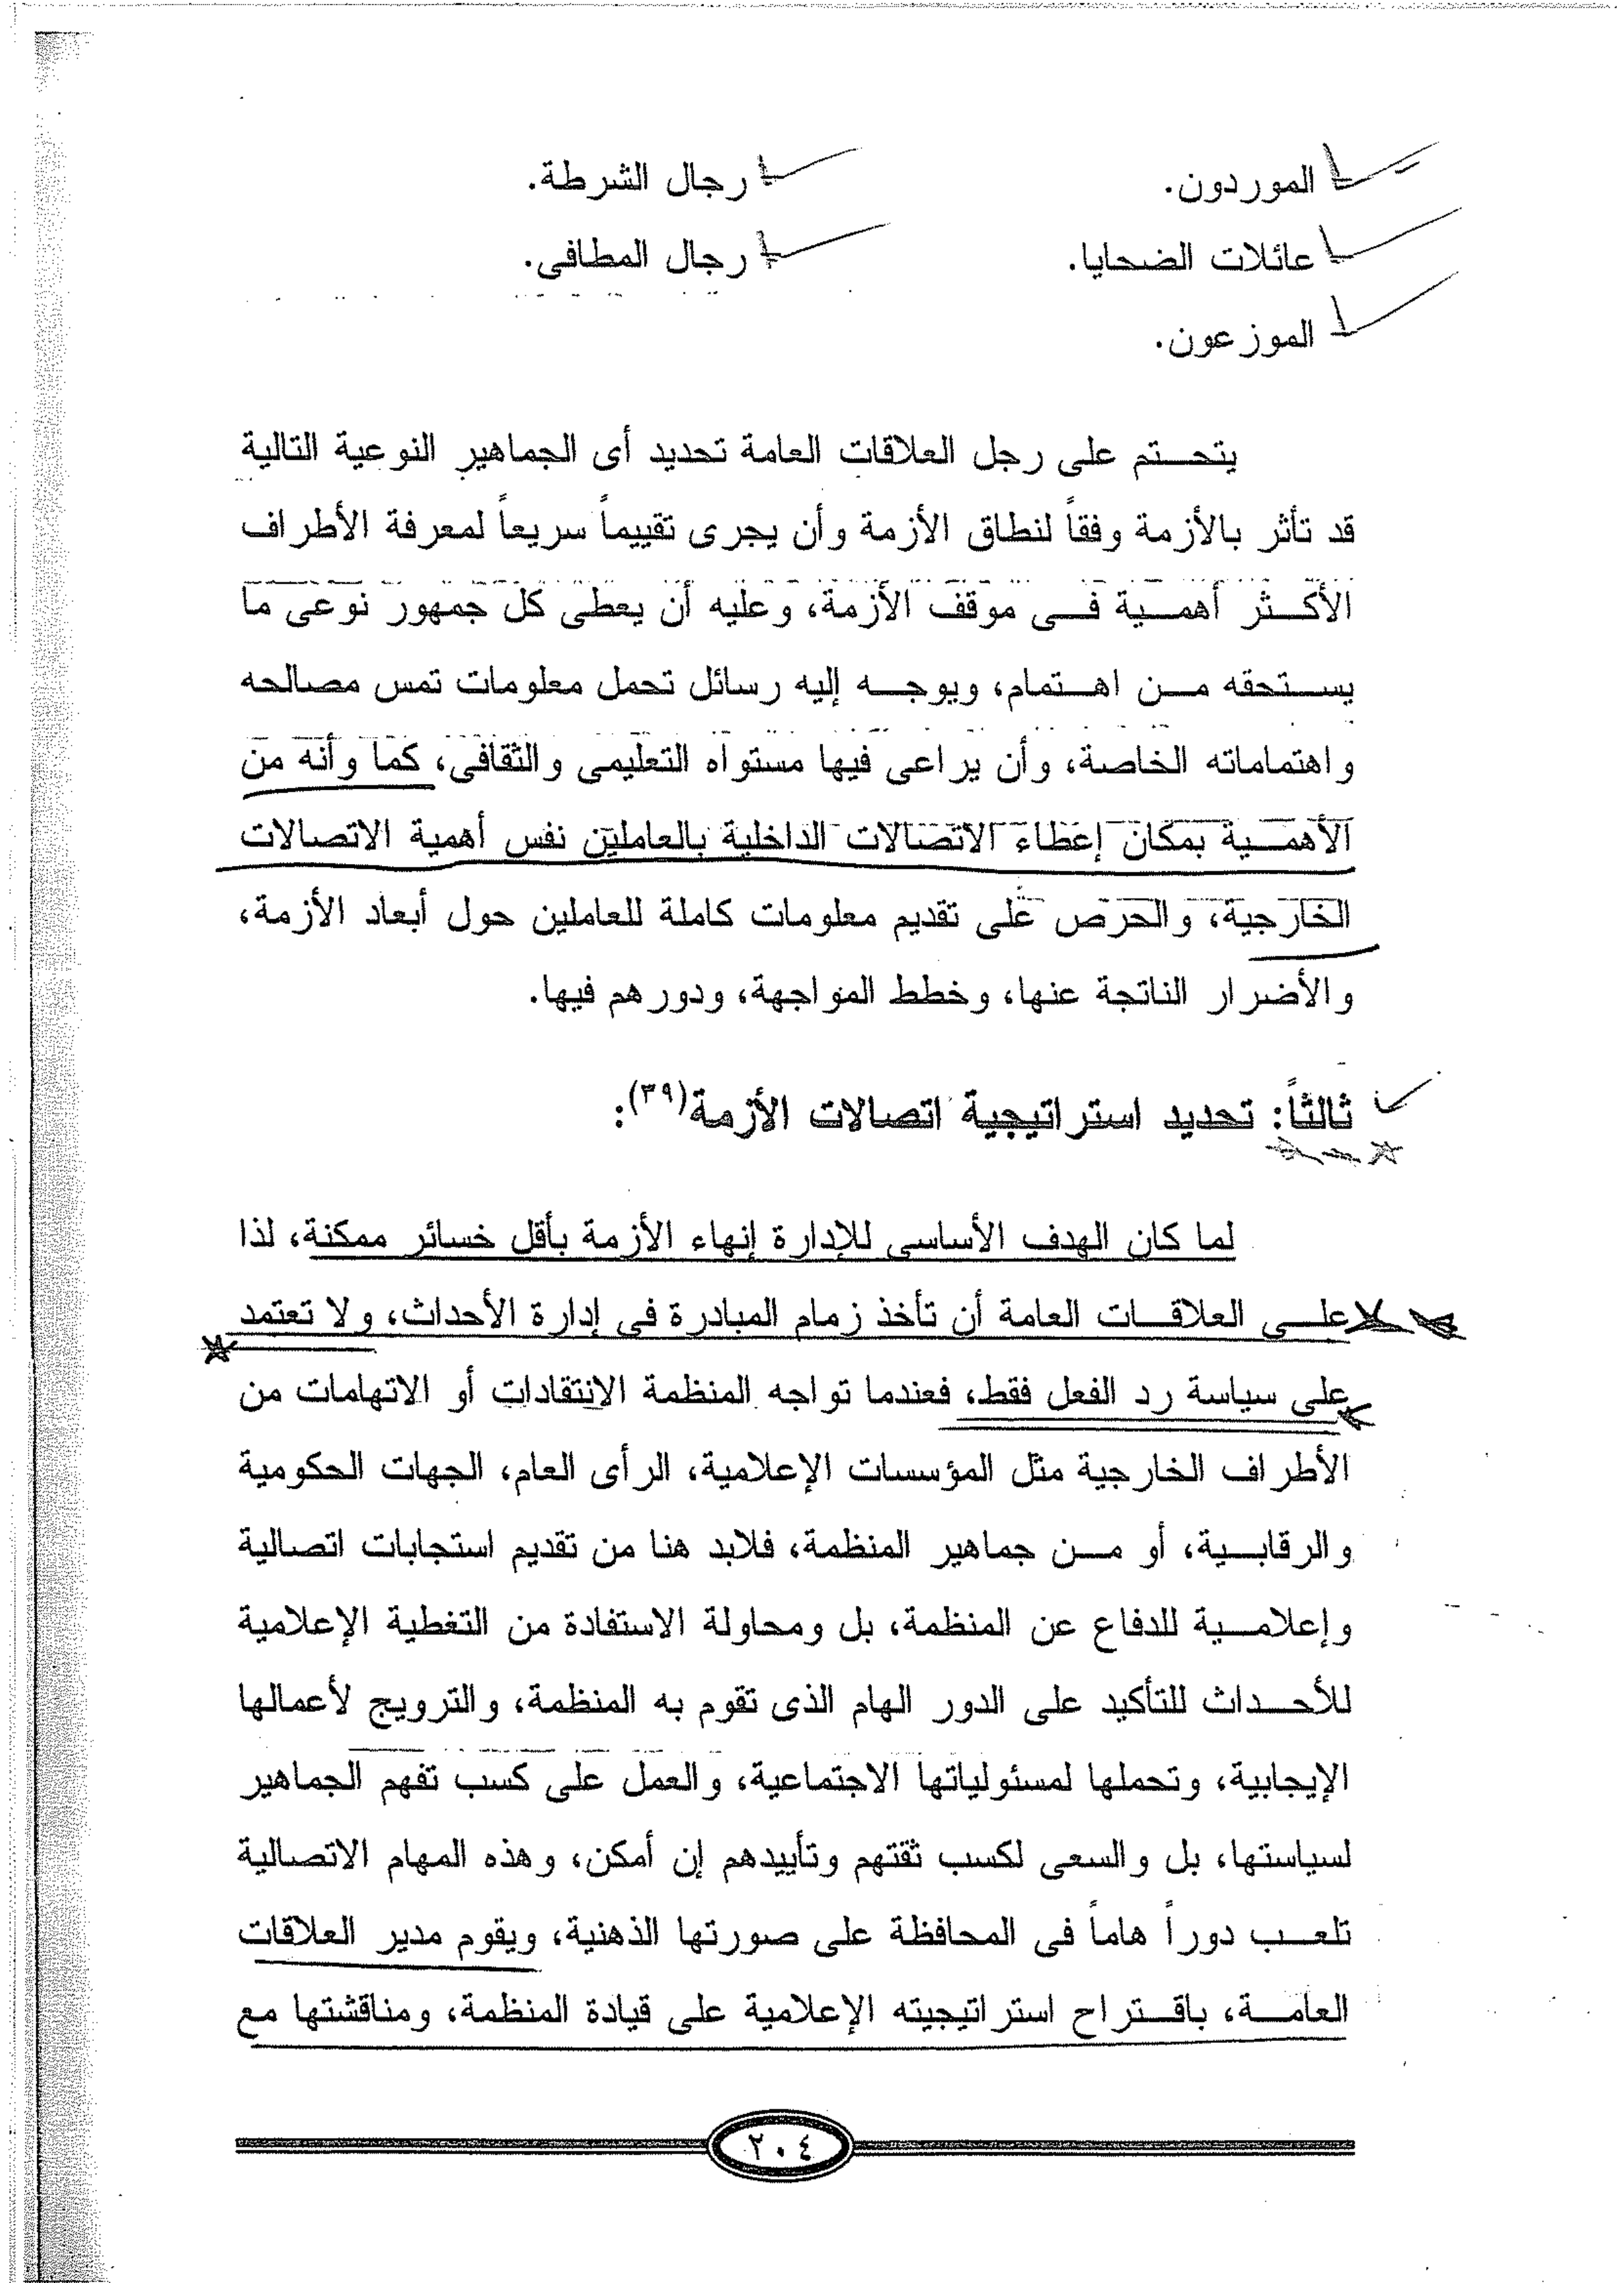 الموردون.
رجال الشرطة.
عائلات الضحايا.
رجال المطافى.
الموزعون.
يتحتم على رجل العلاقات العامة تحديد أى الجماهير النوعية التالية
قد تأثر بالأزمة وفقاً لنطاق الأزمة وأن يجرى تقييماً سريعاً لمعرفة الأطراف
الأكثر أهمية فى موقف الأزمة، وعليه أن يعطى كل جمهور نوعى ما
يستحقه من اهتمام، ويوجه إليه رسائل تحمل معلومات تمس مصالحه
واهتماماته الخاصة، وأن يراعى فيها مستواه التعليمى والثقافى، كما وأنه من
الأهمية بمكان إعطاء الاتصالات الداخلية بالعاملين نفس أهمية الاتصالات
الخارجية، والحرص على تقديم معلومات كاملة للعاملين حول أبعاد الأزمة،
والأضرار الناتجة عنها، وخطط المواجهة، ودورهم فيها.
ثالثاً: تحديد استراتيجية اتصالات الأزمة(٣٩):
لما كان الهدف الأساسى للإدارة إنهاء الأزمة بأقل خسائر ممكنة، لذا
على العلاقات العامة أن تأخذ زمام المبادرة فى إدارة الأحداث، ولا تعتمد
على سياسة رد الفعل فقط، فعندما تواجه المنظمة الانتقادات أو الاتهامات من
الأطراف الخارجية مثل المؤسسات الإعلامية، الرأى العام، الجهات الحكومية
والرقابية، أو من جماهير المنظمة، فلابد هنا من تقديم استجابات اتصالية
وإعلامية للدفاع عن المنظمة، بل ومحاولة الاستفادة من التغطية الإعلامية
للأحداث للتأكيد على الدور الهام الذى تقوم به المنظمة، والترويج لأعمالها
الإيجابية، وتحملها لمسئولياتها الاجتماعية، والعمل على كسب تفهم الجماهير
لسياستها، بل والسعى لكسب ثقتهم وتأييدهم إن أمكن، وهذه المهام الاتصالية
تلعب دوراً هاماً فى المحافظة على صورتها الذهنية، ويقوم مدير العلاقات
العامة، باقتراح استراتيجيته الإعلامية على قيادة المنظمة، ومناقشتها مع
٢٠٤